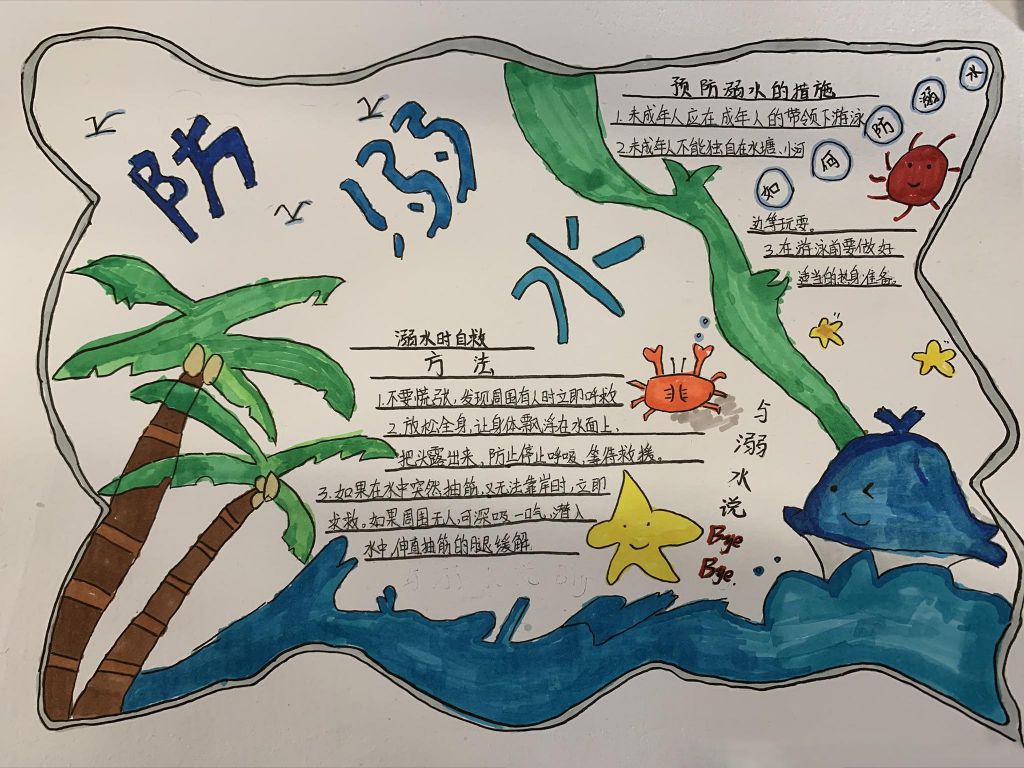 防溺水
预防溺水的措施
1.未成年人应在成年人的带领下游泳
2.未成年人不能独自在水塘、小河
边等玩耍。
3.在游泳前要做好
适当的热身准备。
如何防溺水
溺水时自救
方法
1.不要慌张,发现周围有人时立即呼救
2.放松全身,让身体飘浮在水面上,
把头露出来,防止停止呼吸,等待救援。
3.如果在水中突然抽筋,又无法靠岸时,立即
求救。如果周围无人,可深吸一口气,潜入
水中,伸直抽筋的腿缓解
与溺水说
Bye
Bye.